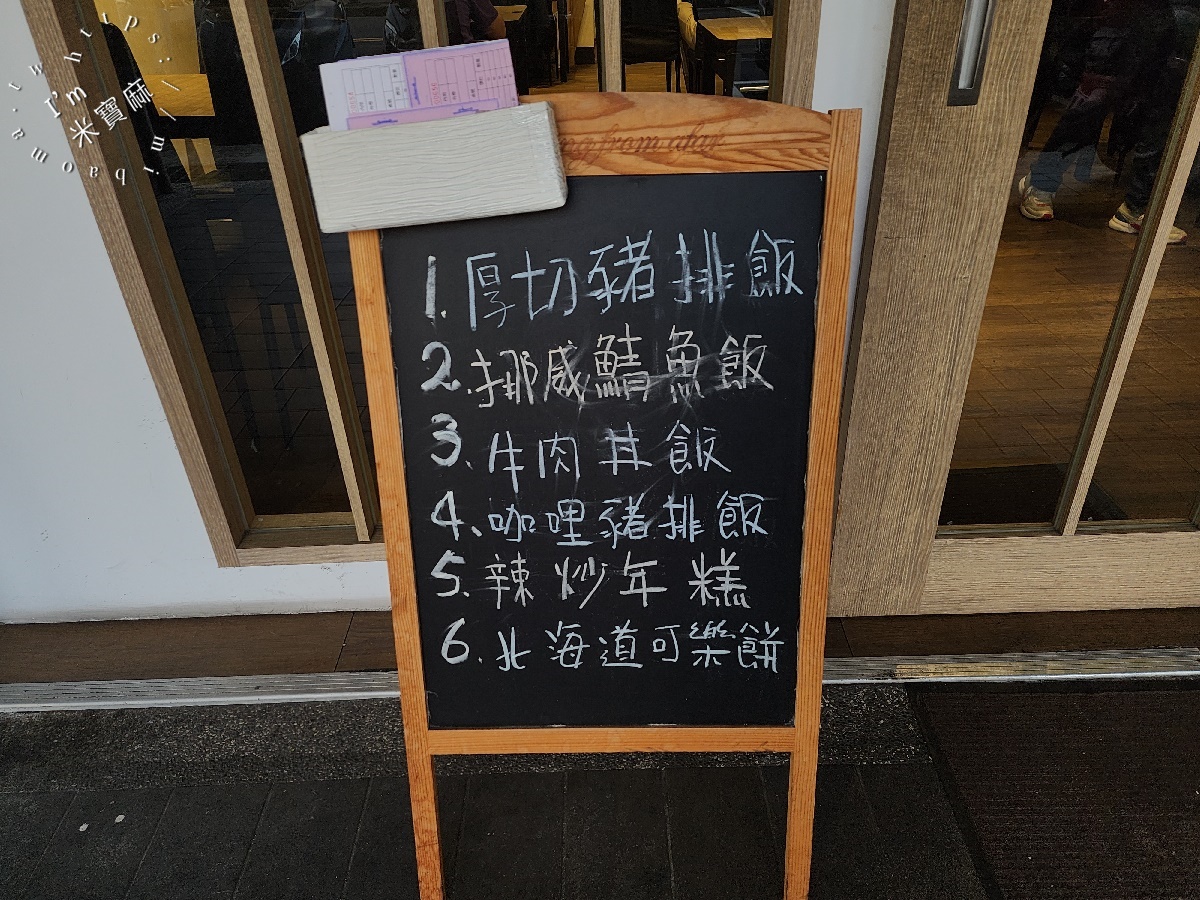 I'm
米寶麻
https://imibaoma.tw
ng from afar
1.厚切豬排飯
2.挪威鯖魚飯
3、牛肉丼飯
4、咖哩豬排飯
5.辣炒年糕
6.北海道可樂餅